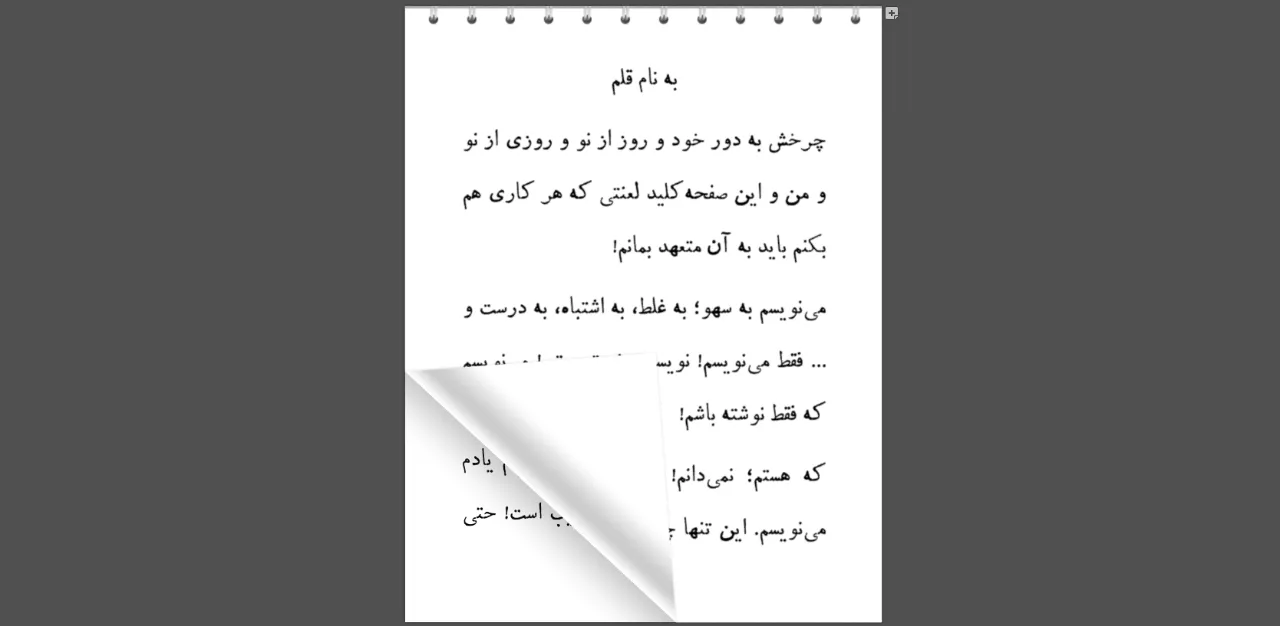 به نام قلم
چرخش به دور خود و روز از نو و روزی از نو
و من و این صفحه‌کلید لعنتی که هر کاری هم
بکنم باید به آن متعهد بمانم!
می‌نویسم به سهو؛ به غلط، به اشتباه، به درست و
... فقط می‌نویسم!
که فقط نوشته باشم!
که هستم؛ نمی‌دانم! یادم
می‌نویسم. این تنها است! حتی